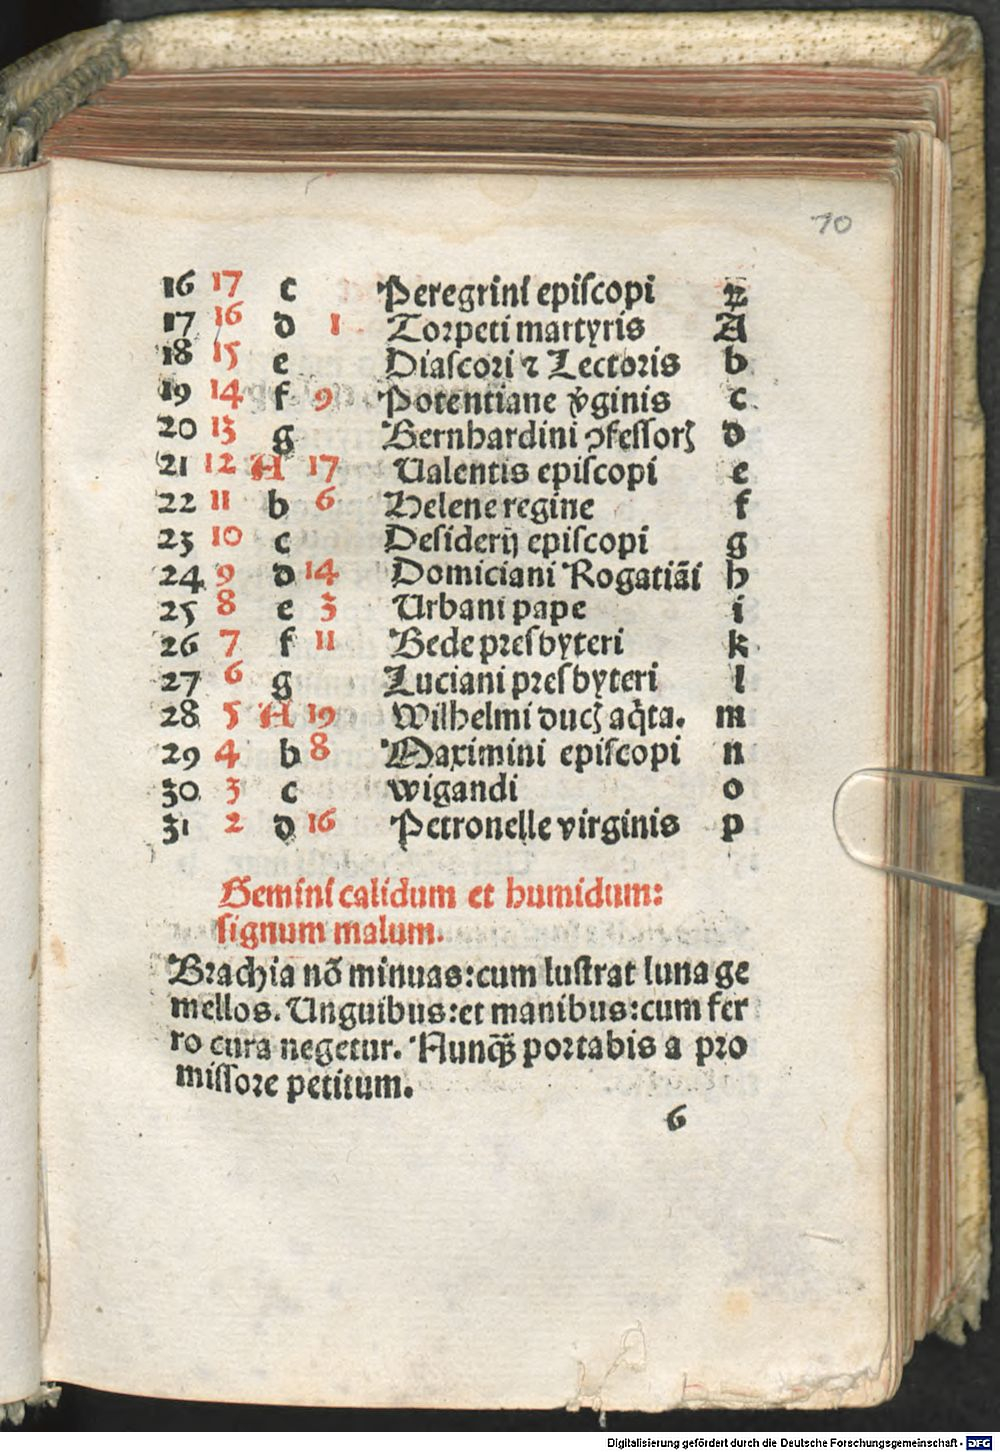 10
16 17 c Peregrini epiſcopi ꝛ
17 16 d 1 Toꝛpeti martyris A
18 15 e Diaſcoꝛi ⁊ Lectoꝛis b
19 14 f 9 Potentiane v̾ginis c
20 13 g Bernhardini ꝯfeſſoꝝ d
21 12 A 17 Ualentis epiſcopi e
22 11 b 6 Helene regine f
23 10 c Deſiderij epiſcopi g
24 9 d 14 Domiciani Rogatiãi h
25 8 e 3 Urbani pape i
26 7 f 11 Bede pꝛeſbyteri k
27 6 g Luciani pꝛeſbyteri l
28 5 A 19 Wilhelmi ducꝭ aq̇ta. m
29 4 b 8 Maximini epiſcopi n
30 3 c wigandi o
31 2 d 16 Petronelle virginis p
Gemini calidum et humidum:
ſignum malum.
Brachia nõ minuas:cum luſtrat luna ge
mellos. Unguibus:et manibus:cum fer
ro cura negetur. Nunq̃ꝫ poꝛtabis a pꝛo
miſſoꝛe petitum.
6
Digitalisierung gefördert durch die Deutsche Forschungsgemeinschaft - DFG